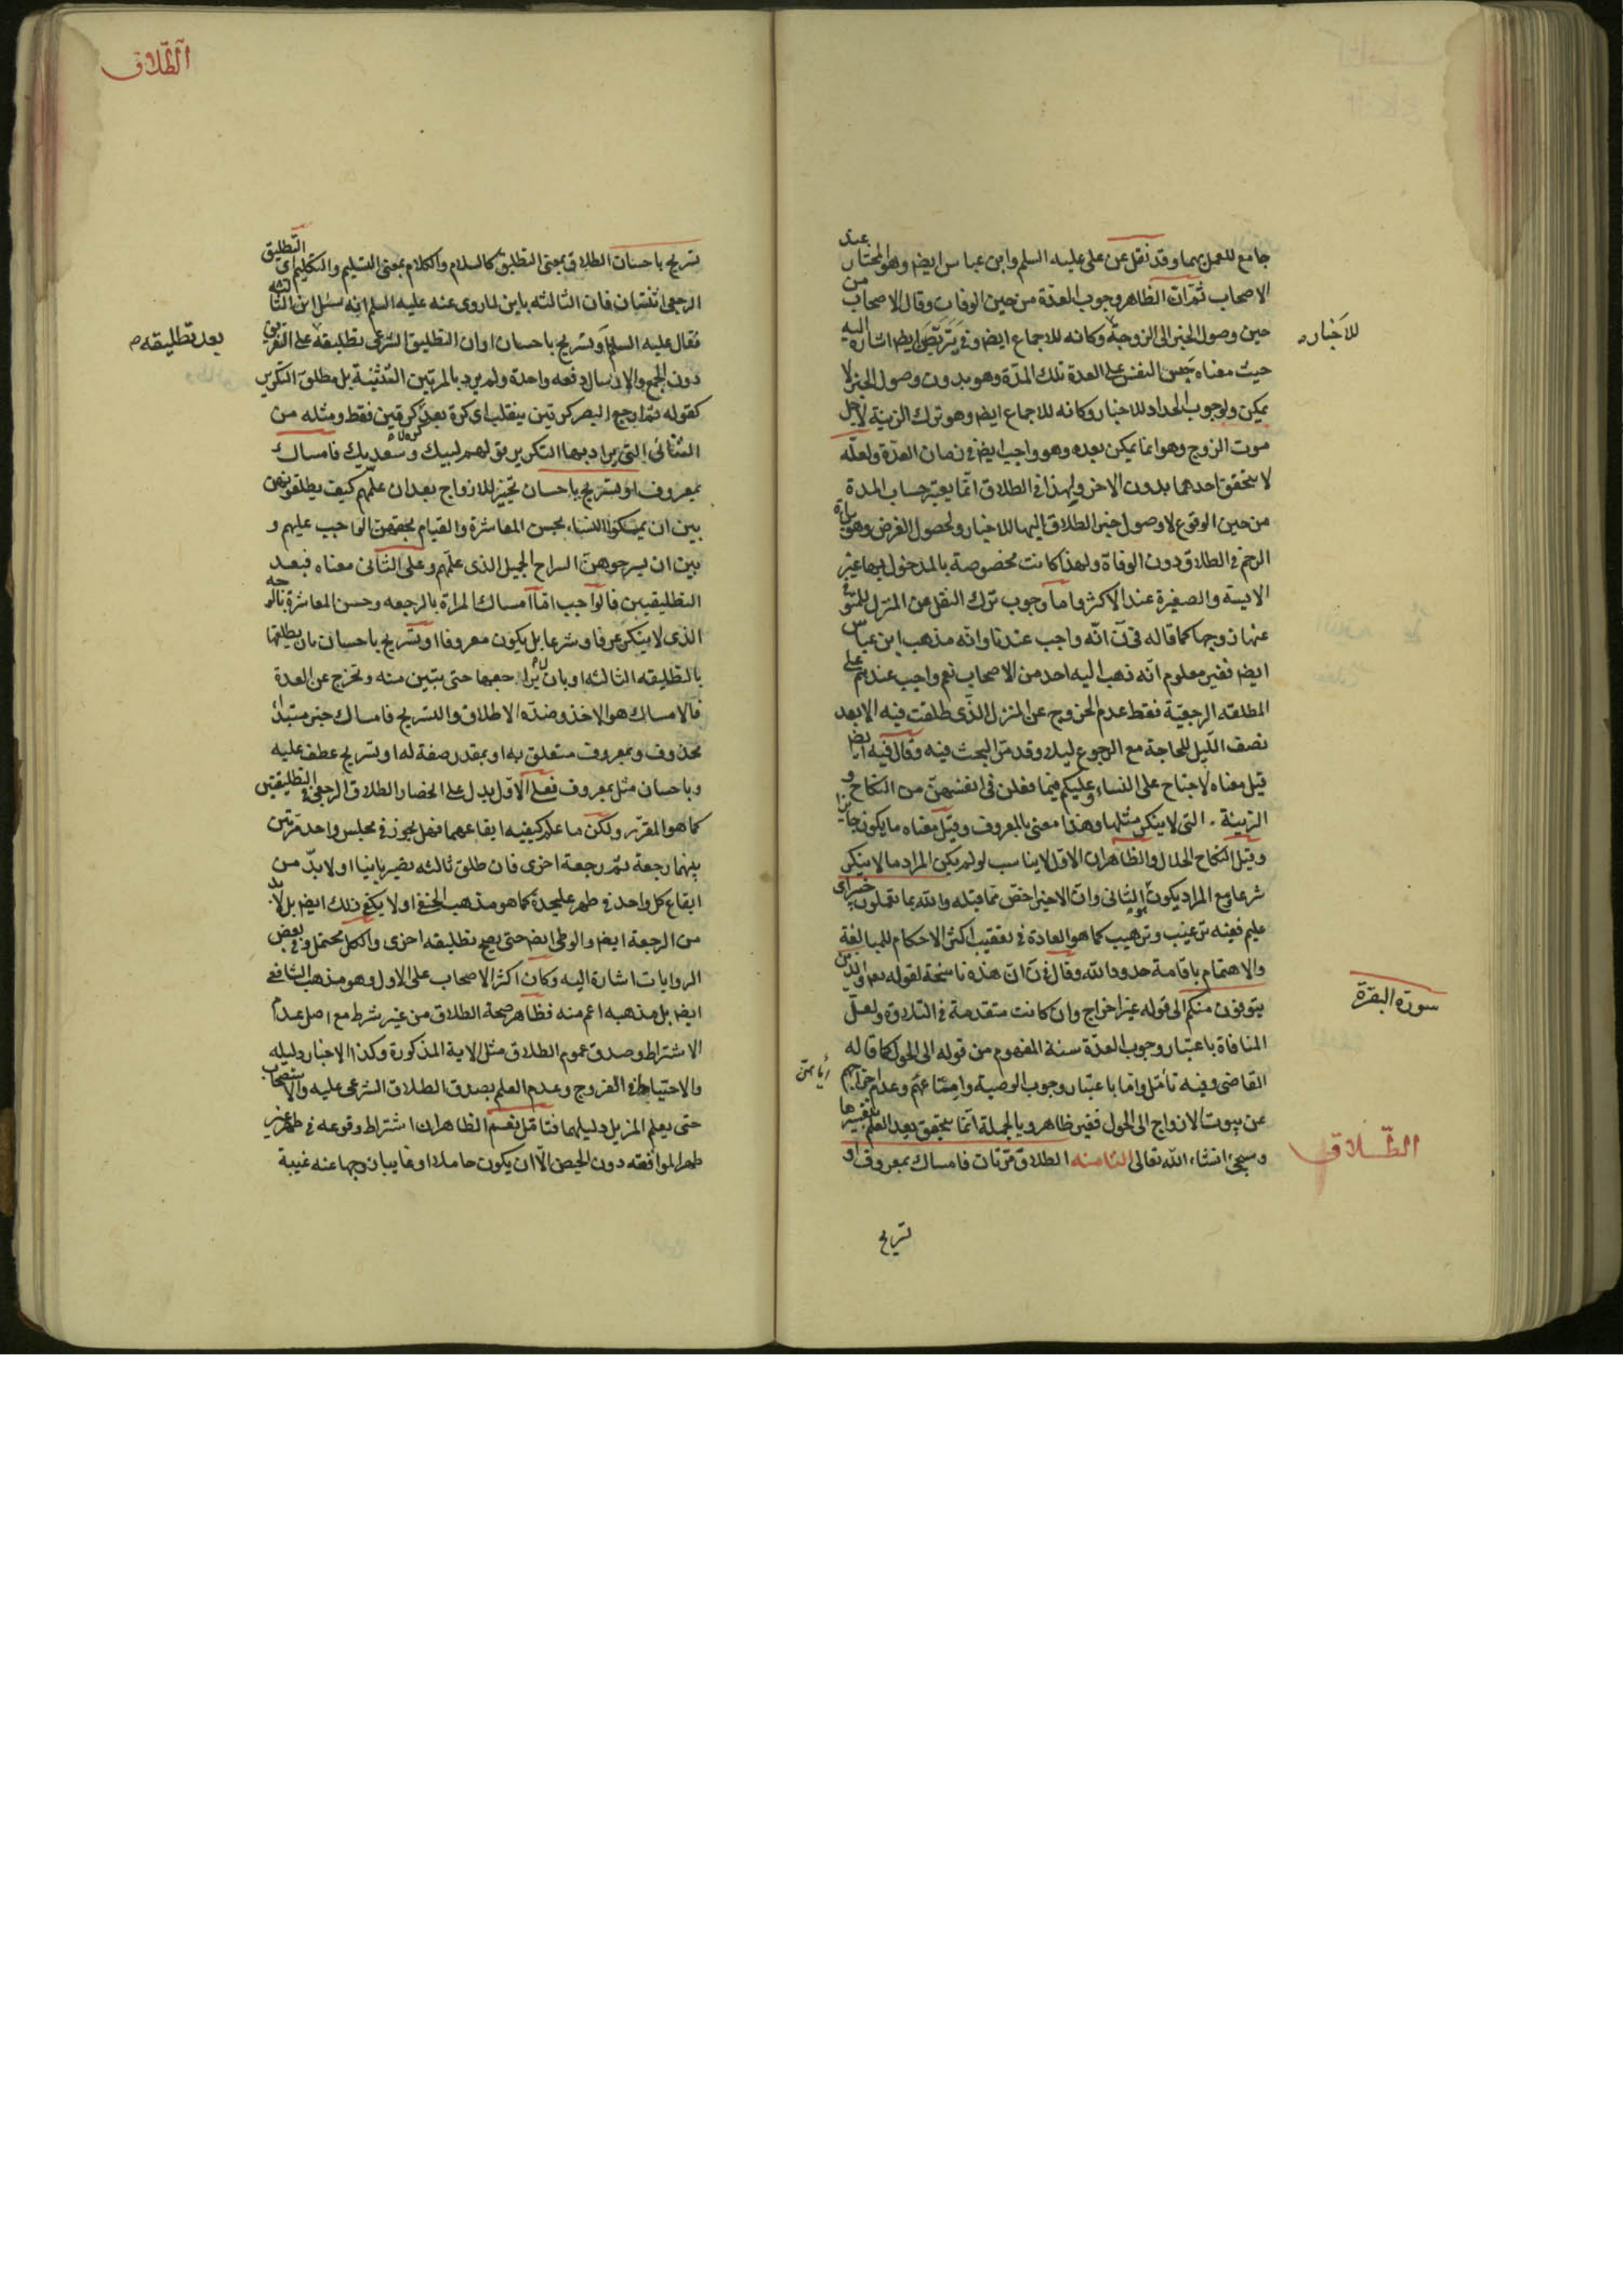 جامع للعمل بهما وقد نقل عن على عليه السلم وابن عباس ايضا وهو المختار عند
الاصحاب ثم ان الظاهر وجوب العدة من حين الوفات وقال الاصحاب من
حين وصول الخبر الى الزوجة وكانه للاجماع ايضا وفى يتربصن ايضا اشارة اليه
للاخبار
حيث معناه حبس النفس على العدة تلك المدة وهو بدون وصول الخبر لا
يمكن ولوجوب الحداد للاخبار وكانه للاجماع ايضا وهو ترك الزينة لاجل
موت الزوج وهو انما يمكن بعده وهو واجب ايضا فى زمان العدة ولعله
لا يتحقق احدهما بدون الاخر ولهذا فى الطلاق انما يعتبر حساب المدة
من حين الوقوع لا وصول خبر الطلاق اليها للاخبار ولحصول الغرض وهو براءة
الرحم فى الطلاق دون الوفاة ولهذا كانت مخصوصة بالمدخول بها غير
الايسة والصغيرة عند الاكثر واما وجوب ترك النقل من المنزل للمتوفى
عنها زوجها كما قاله فى ن انه واجب عندنا وانه مذهب ابن عباس
ايضا فغير معلوم انه ذهب اليه احد من الاصحاب نعم واجب عندهم على
المطلقة الرجعية فقط عدم الخروج عن المنزل الذى طلقت فيه الا بعد
نصف الليل للحاجة مع الرجوع ليلا وقد مر البحث فيه وقال فيه ايضا
قيل معناه لا جناح على النساء وعليكم فيما فعلن فى انفسهن من النكاح و
الزينة التى لا ينكر مثلها وهذا معنى بالمعروف وقيل معناه ما يكون جايزا
وقيل النكاح الحلال والظاهر ان الاول لا يناسب لو لم يكن المراد ما لا ينكر
شرعا ومع المراد يكون هو الثانى وان الاخير اخص مما قبله والله بما تعملون خبير اى
عليم ففيه ترغيب وترهيب كما هو العادة فى تعقيب اكثر الاحكام للمبالغة
والاهتمام باقامة حدود الله وقال فى ن ان هذه ناسخة لقوله تعالى والذين
سورة البقرة
يتوفون منكم الى قوله غير اخراج وان كانت متقدمة فى التلاوة ولعل
المنافاة باعتبار وجوب العدة سنة المفهوم من قوله الى الحول كما قاله
القاضى وفيه تأمل واما باعتبار وجوب الوصية وامتاعهم وعدم اخراجهم
عن بيوت الازواج الى الحول فغير ظاهر وبالجملة انما يتحقق بعد العلم بتفسيرها
وسيجئ انشاء الله تعالى الثامنه الطلاق مرتان فامساك بمعروف او
الطلاق
تسريح
الطلاق
تسريح باحسان الطلاق بمعنى التطليق كالسلام والكلام بمعنى التسليم والتكليم اى التطليق
الرجعى اثنتان فان الثالثه باين لما روى عنه عليه السلم انه سئل اين الثالثة
فقال عليه السلم او تسريح باحسان او ان التطليق الشرعى تطليقه على التفريق
بعد تطليقه
دون الجمع والارسال دفعه واحدة ولم يرد بالمرتين التثنية بل مطلق التكرير
كقوله ثم ارجع البصر كرتين ينقلب اى كرة بعد كرة لا كرتين فقط ومثله من
الثنائى التى يراد بها التكرير قولهم لبيك وسعديك فامساك
بمعروف او تسريح باحسان تخيير للازواج بعد ان علمهم كيف يطلقونهن
بين ان يمسكوا النساء بحسن المعاشرة والقيام بحقهن الواجب عليهم و
بين ان يسرحوهن السراح الجميل الذى علمهم وعلى الثانى معناه فبعد
التطليقين فالواجب اما امساك المراة بالرجعه وحسن المعاشرة بالوجه
الذى لا ينكر عرفا وشرعا بل يكون معروفا او تسريح باحسان بان يطلقها
بالتطليقه الثالثه او بان لا يراجعها حتى يتبين منه وتخرج عن العدة
فالامساك هو الاخذ وضده الاطلاق والتسريح فامساك خبر مبتدا
محذوف وبمعروف متعلق به او بمقدر صفة له او تسريح عطف عليه
وباحسان مثل بمعروف فعلى الاول يدل على انحصار الطلاق الرجعى فى التطليقتين
كما هو المقرر ولكن ما علم كيفيه ايقاعهما فهل يجوز فى مجلس واحد مرتين
بينهما رجعة ثم رجعة اخرى فان طلق ثالثه يصير باينا او لا بد من
ايقاع كل واحد فى طهر عليحدة كما هو مذهب الحنفى او لا يكفى ذلك ايضا بل لا بد
من الرجعة ايضا والوطى ايضا حتى يصح تطليقه اخرى والكل محتمل وفى بعض
الروايات اشارة اليه وكان اكثر الاصحاب على الاول وهو مذهب الشافعى
ايضا بل مذهبه اعم منه فظاهر صحة الطلاق من غير شرط مع اصل عدم
الاشتراط وصدق عموم الطلاق مثل الاية المذكورة وكذا الاخبار دليله
والاحتياط فى الفروج وعدم العلم بصدق الطلاق الشرعى عليه والاستصحاب
حتى يعلم المزيل دليلهما فتامل نعم الظاهر ان اشتراط وقوعه فى طهر غير
طهر المواقعه دون الحيض الا ان يكون حاملا او غايبا زوجها عنه غيبة